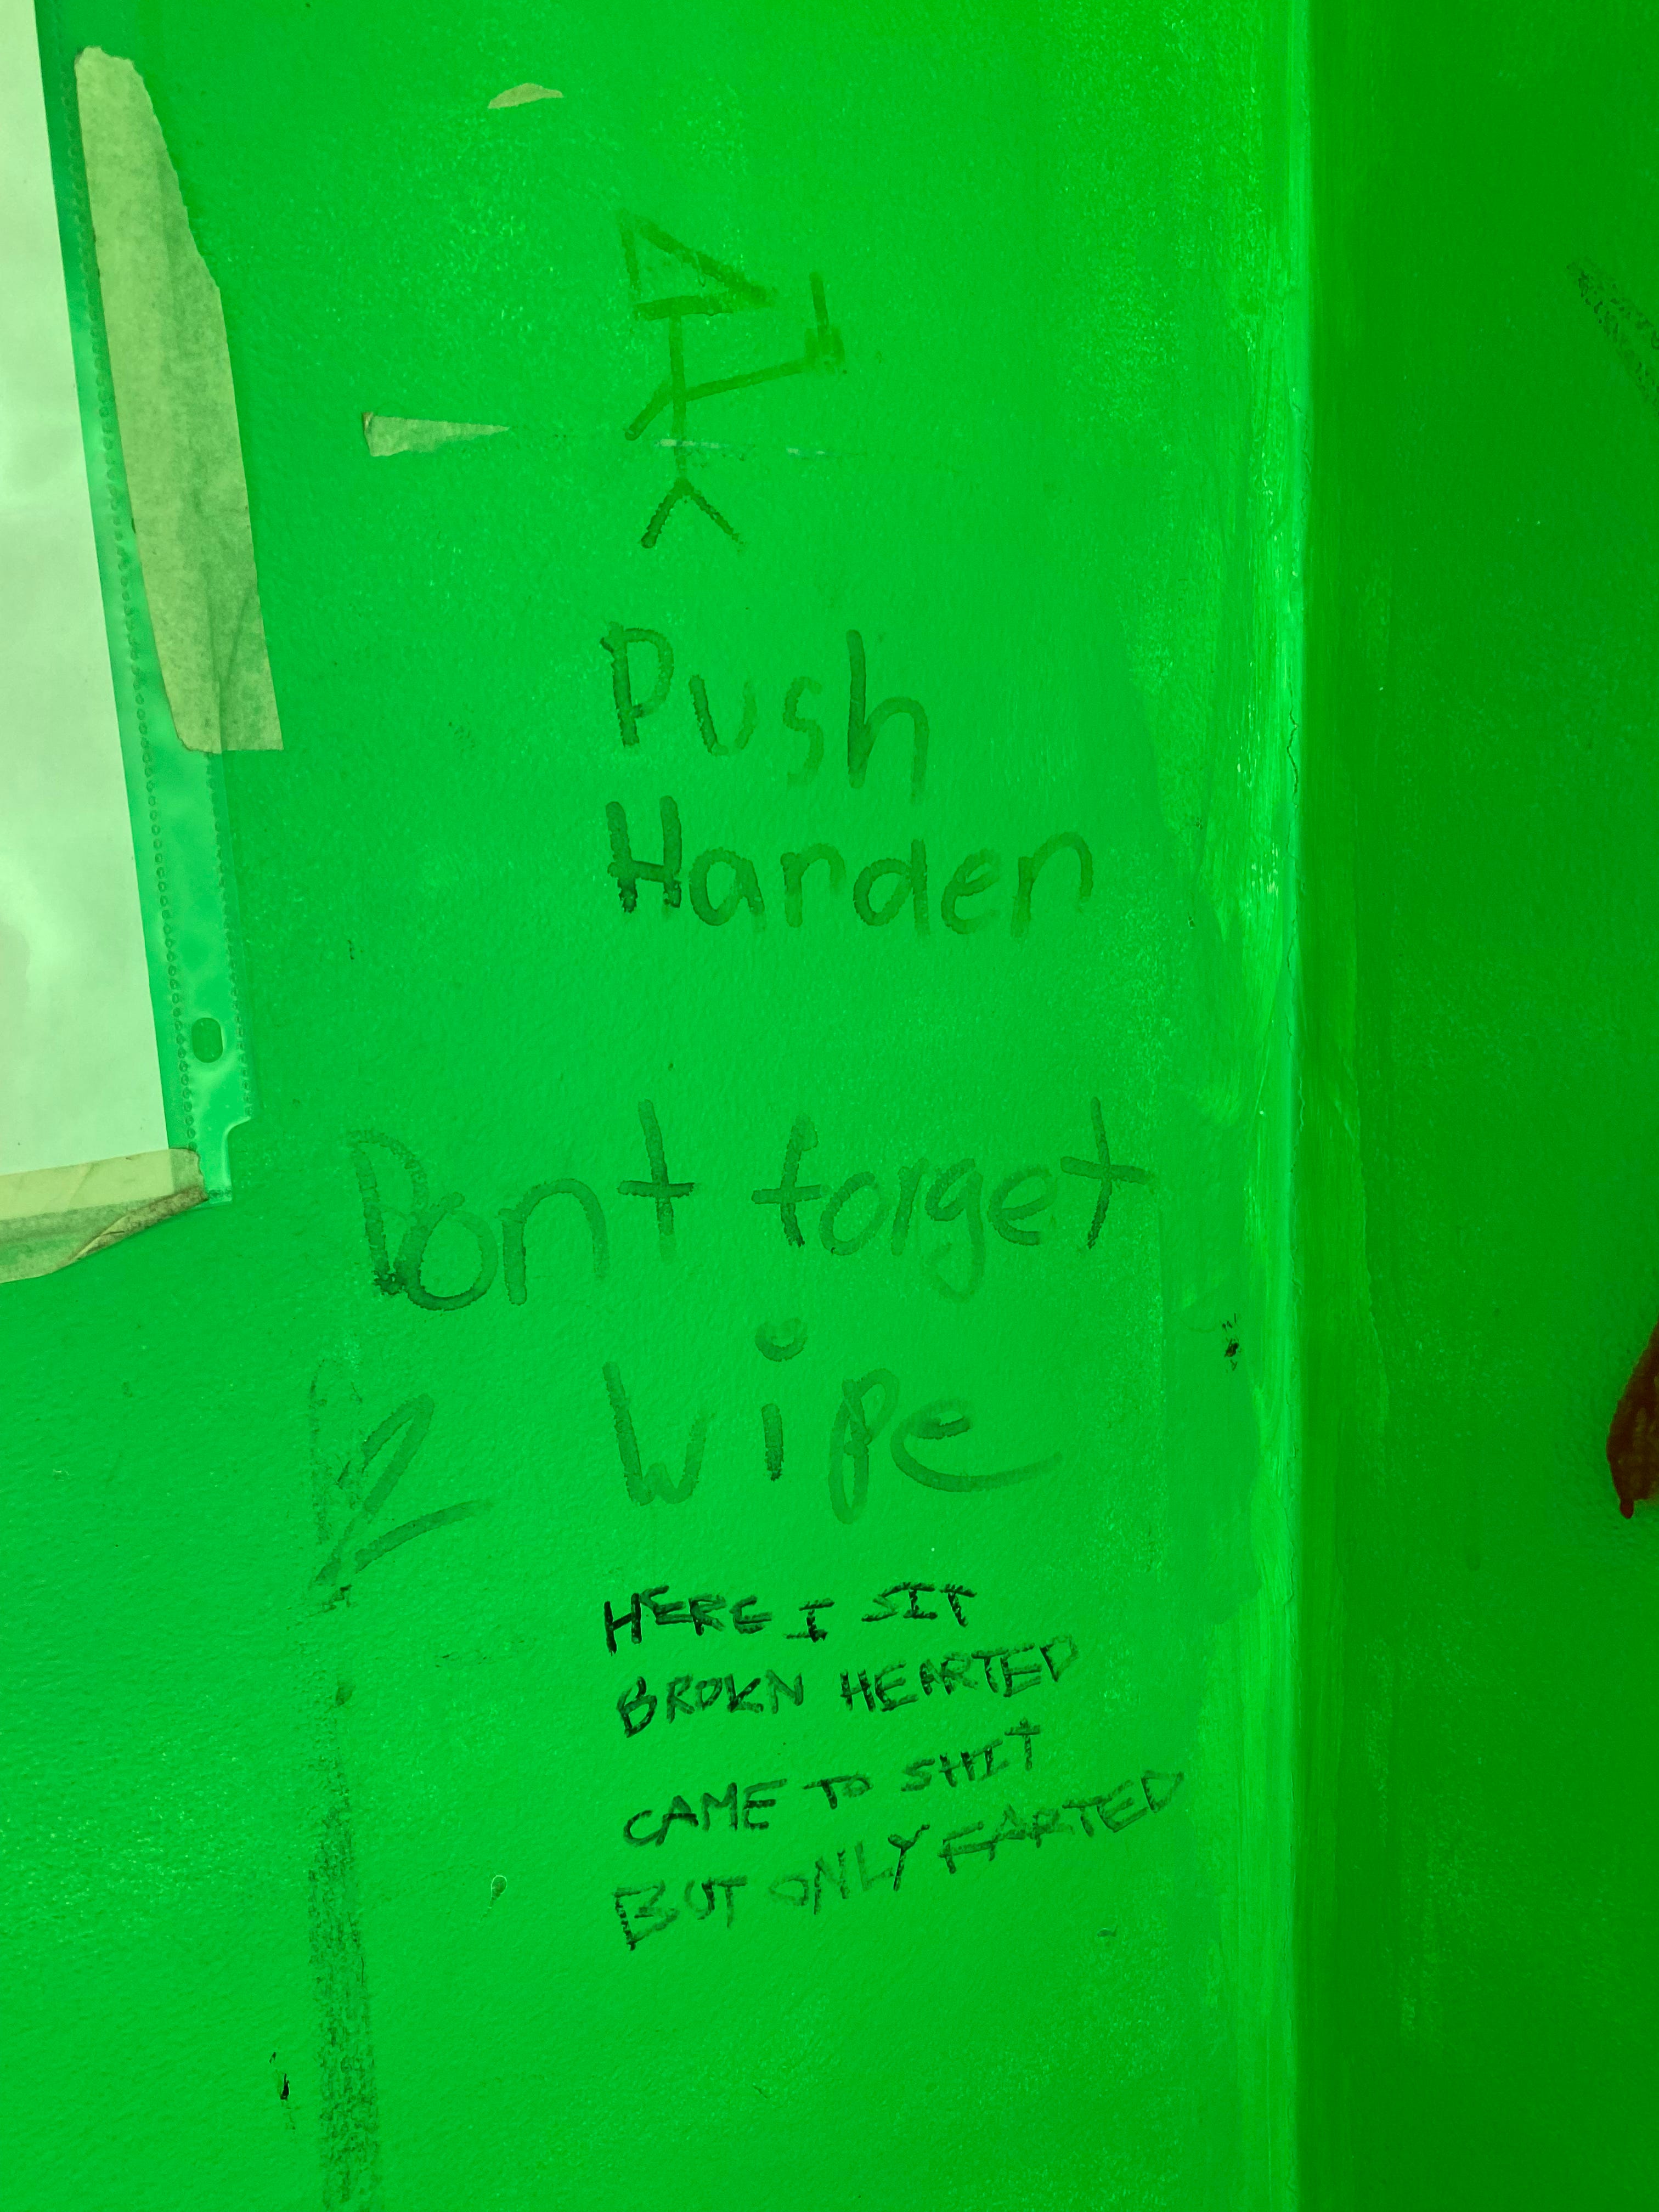 Push
Harder
Dont forget
2 wipe
HERE I SIT
BROKN HEARTED
CAME TO SHIT
BUT ONLY FARTED